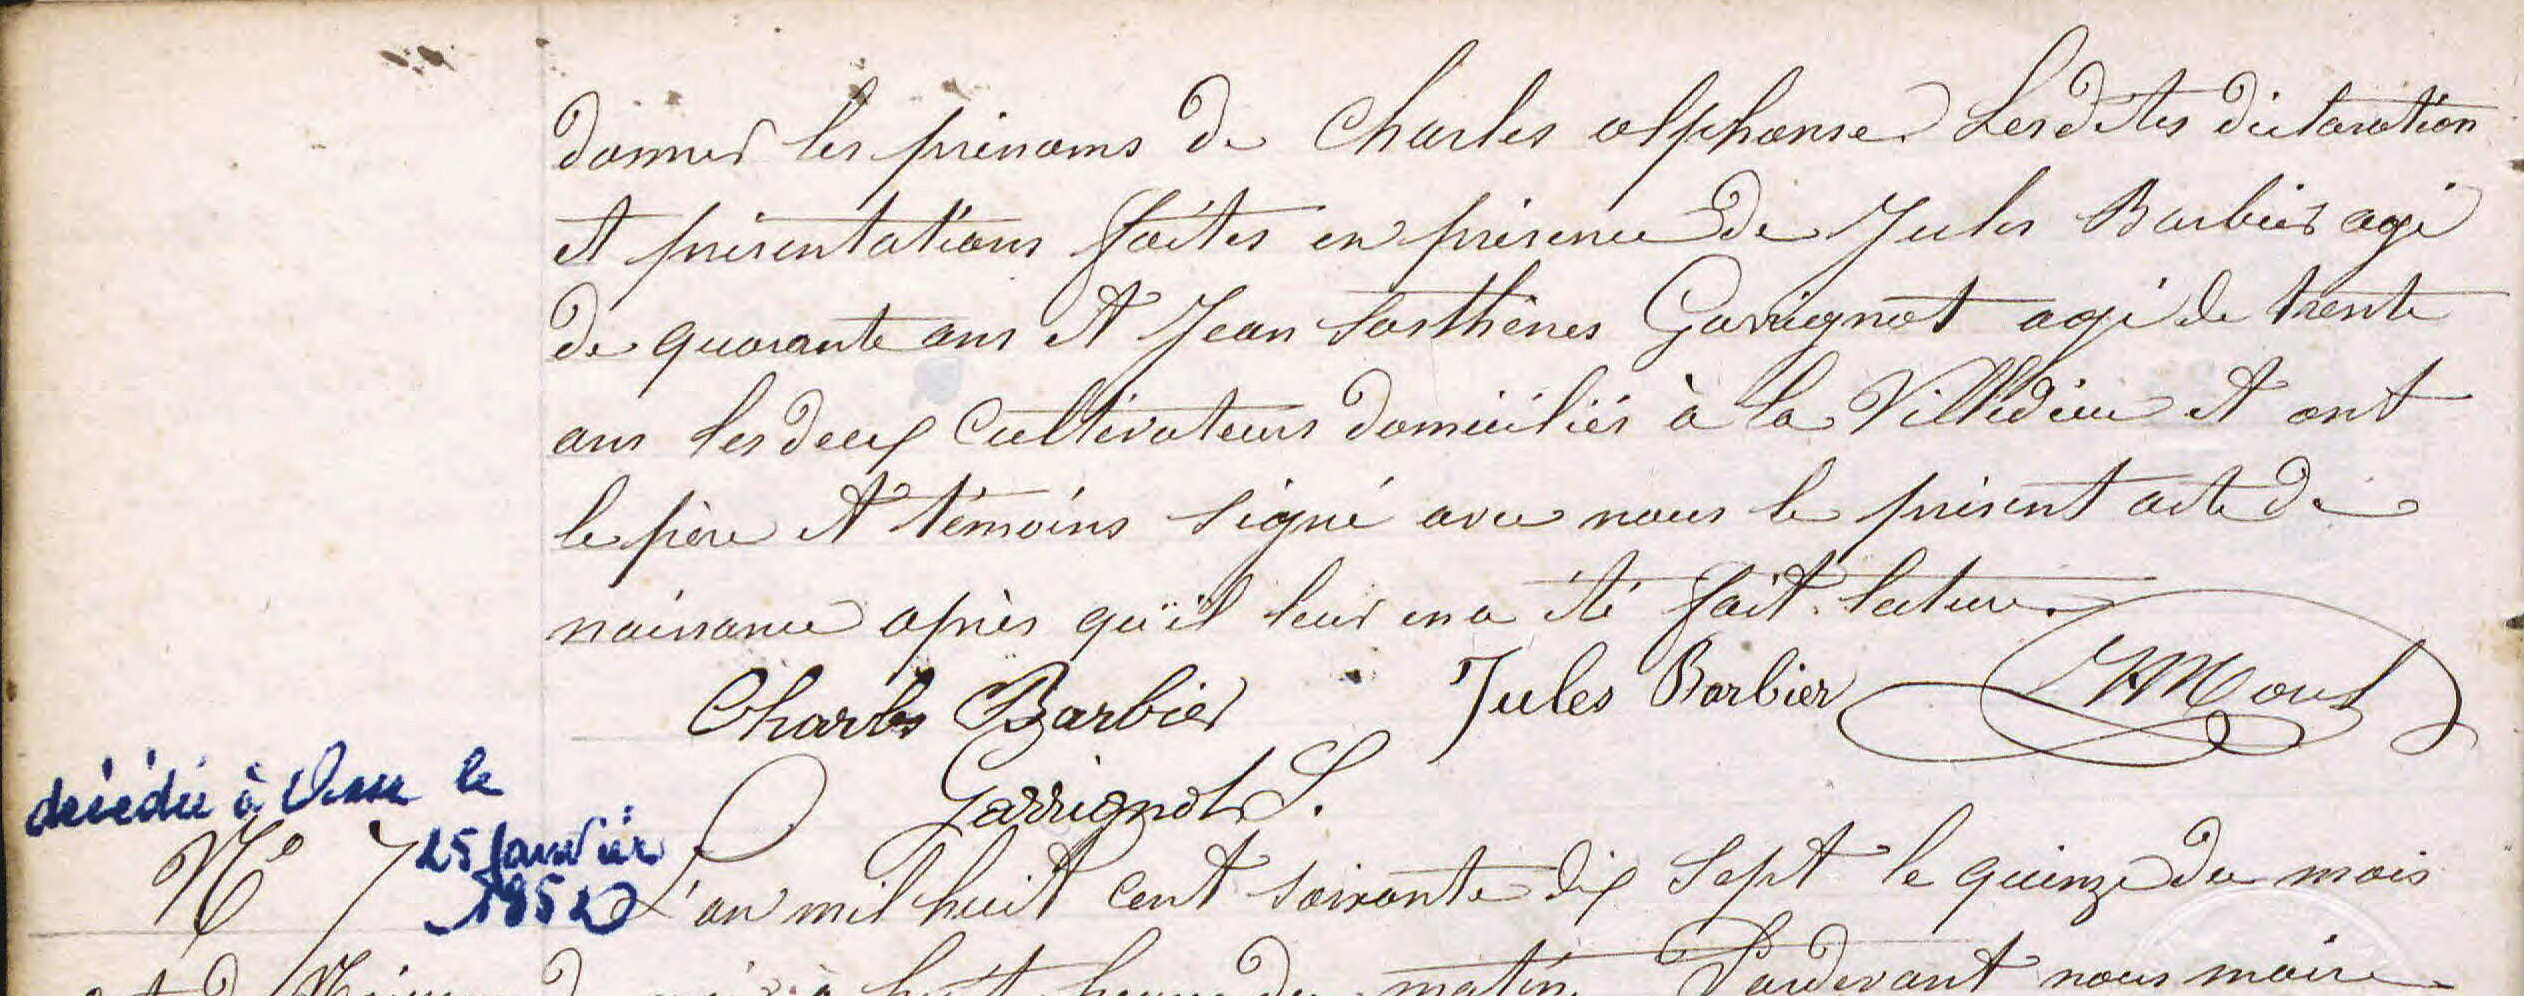 donner les prénoms de Charles alphonse. Lesdites déclaration
et présentations faites en présence de Jules Barbier agé
de quarante ans et Jean Sosthènes Garrignot agé de trente
ans les deux Cultivateurs domiciliés à la Villedieu et ont
le père et témoins signé avec nous le présent acte de
naissance après qu'il leur en a été fait lecture.
Charles Barbier Jules Barbier
Garrignot S.
décédée à le
25 Janvier
1952
N° 7
L'an mil huit cent soixante dix Sept le quinze du mois
de mai à huit heures du matin Pardevant nous maire